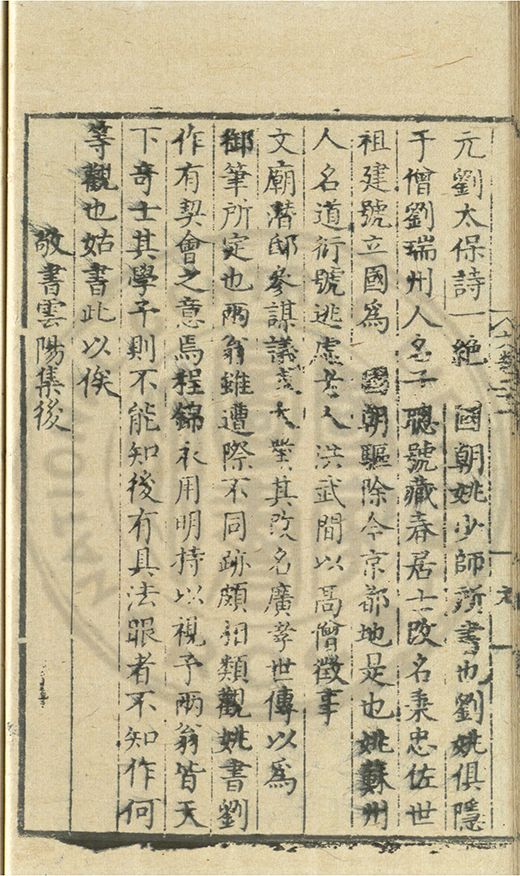 元劉太保詩一絶　國朝姚少師所書也劉姚俱隱
于僧劉瑞州人名子聰號藏春居士改名秉忠佐世
祖建號立國爲　國朝驅除今京都地是也姚蘇州
人名道衍號逃虛老人洪武間以高僧徵事
文廟潛邸參謀議 其改名廣孝世傳以爲
御筆所定也兩翁雖遭際不同跡頗相類觀姚書劉
作有契會之意焉程錦衣用明持以視予兩翁皆天
下奇士其學予則不能知後有具法眼者不知作何
等觀也姑書此以俟
敬書雲陽集後